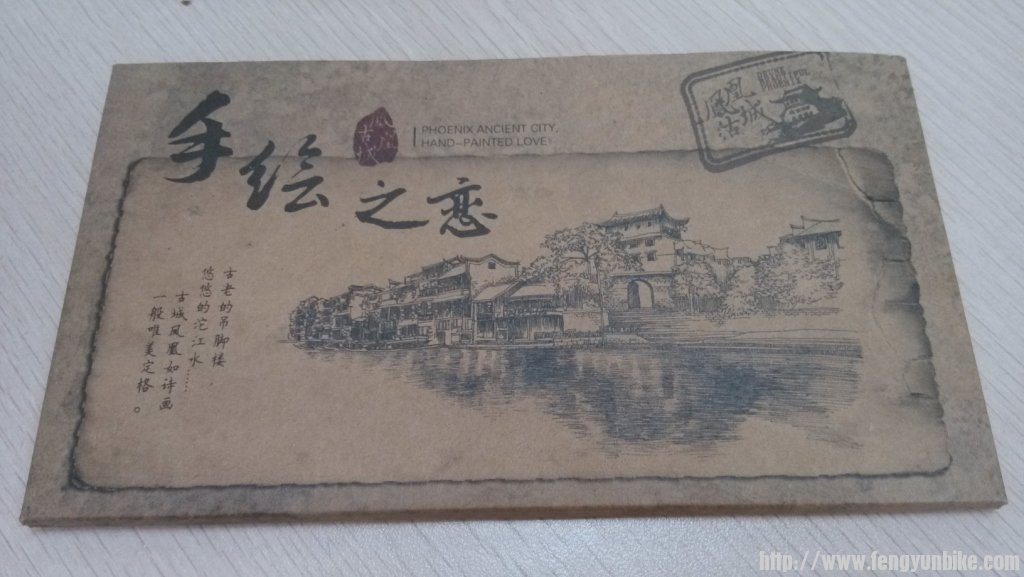 手绘之恋
古城
PHOENIX ANCIENT CITY,
HAND-PAINTED LOVE
凤凰
古城
古老的吊脚楼,
悠悠的沱江水……
古城凤凰如诗画
一般唯美定格。
http://www.fengyunbike.com